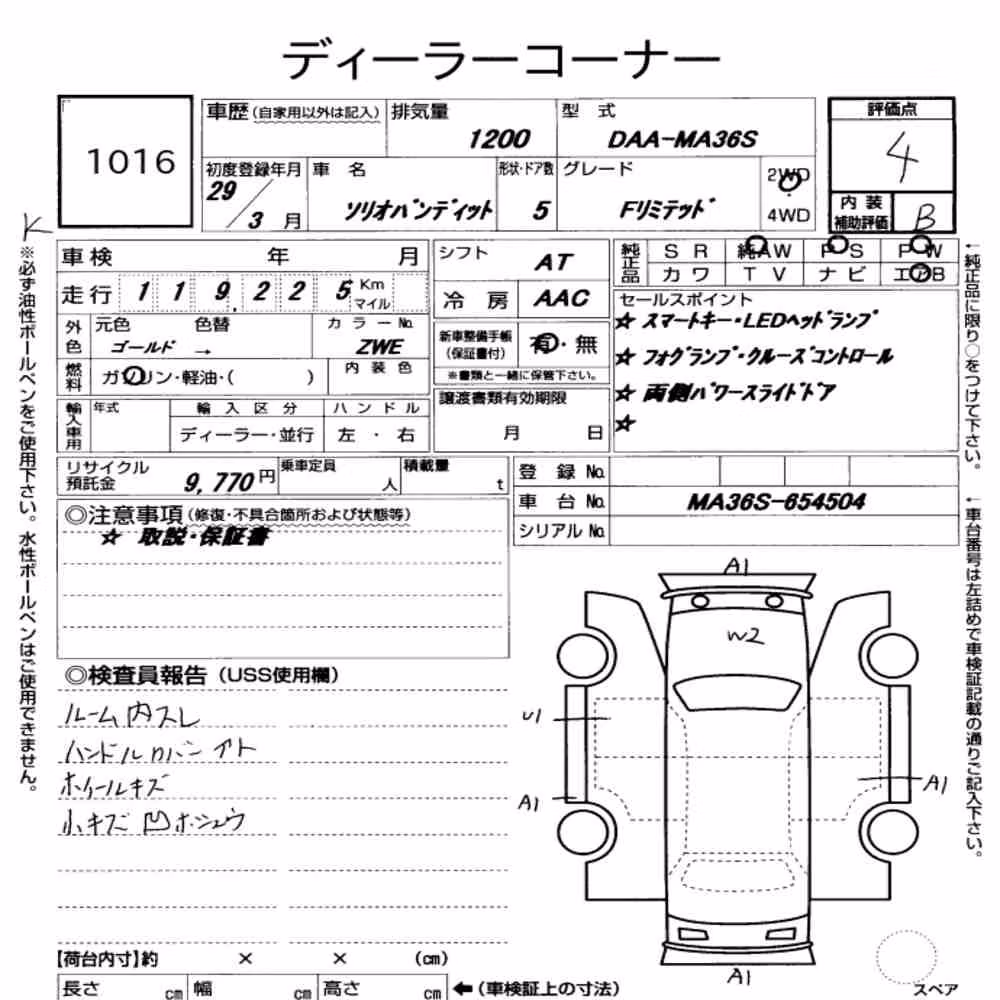 ディーラーコーナー
1016
車歴(自家用以外は記入) 排気量 1200 型式 DAA-MA36S
評価点 4
初度登録年月 29/3月 車名 ソリオバンディット 形状・ドア数 5 グレード Fリミテッド 2WD・4WD
内装補助評価 B
K
車検 年 月 シフト AT
純正品 SR 純AW PS PW
カワ TV ナビ エアB
走行 119,225 Km マイル 冷房 AAC
セールスポイント
☆ スマートキー・LEDヘッドランプ
☆ フォグランプ・クルーズコントロール
☆ 両側パワースライドドア
☆
外色 元色 ゴールド → 色替 カラーNo. ZWE
新車整備手帳(保証書付) 有・無
※書類と一緒に保管下さい。
燃料 ガソリン・軽油・( ) 内装色
譲渡書類有効期限 月 日
輸入車用 年式 輸入区分 ハンドル
ディーラー・並行 左・右
リサイクル預託金 9,770円 乗車定員 人 積載量 t
登録No.
車台No. MA36S-654504
シリアルNo.
◎注意事項(修復・不具合箇所および状態等)
☆ 取説・保証書
◎検査員報告(USS使用欄)
ルーム内スレ
ハンドルカバーアト
ホイールキズ
小キズ 凹 ホシュウ
A1
W2
U1
A1
A1
A1
スペア
【荷台内寸】約 × × (cm)
長さ cm 幅 cm 高さ cm ←(車検証上の寸法)
※必ず油性ボールペンをご使用下さい。水性ボールペンはご使用できません。
←純正品に限り○をつけて下さい。
←車台番号は左詰めで車検証記載の通りご記入下さい。